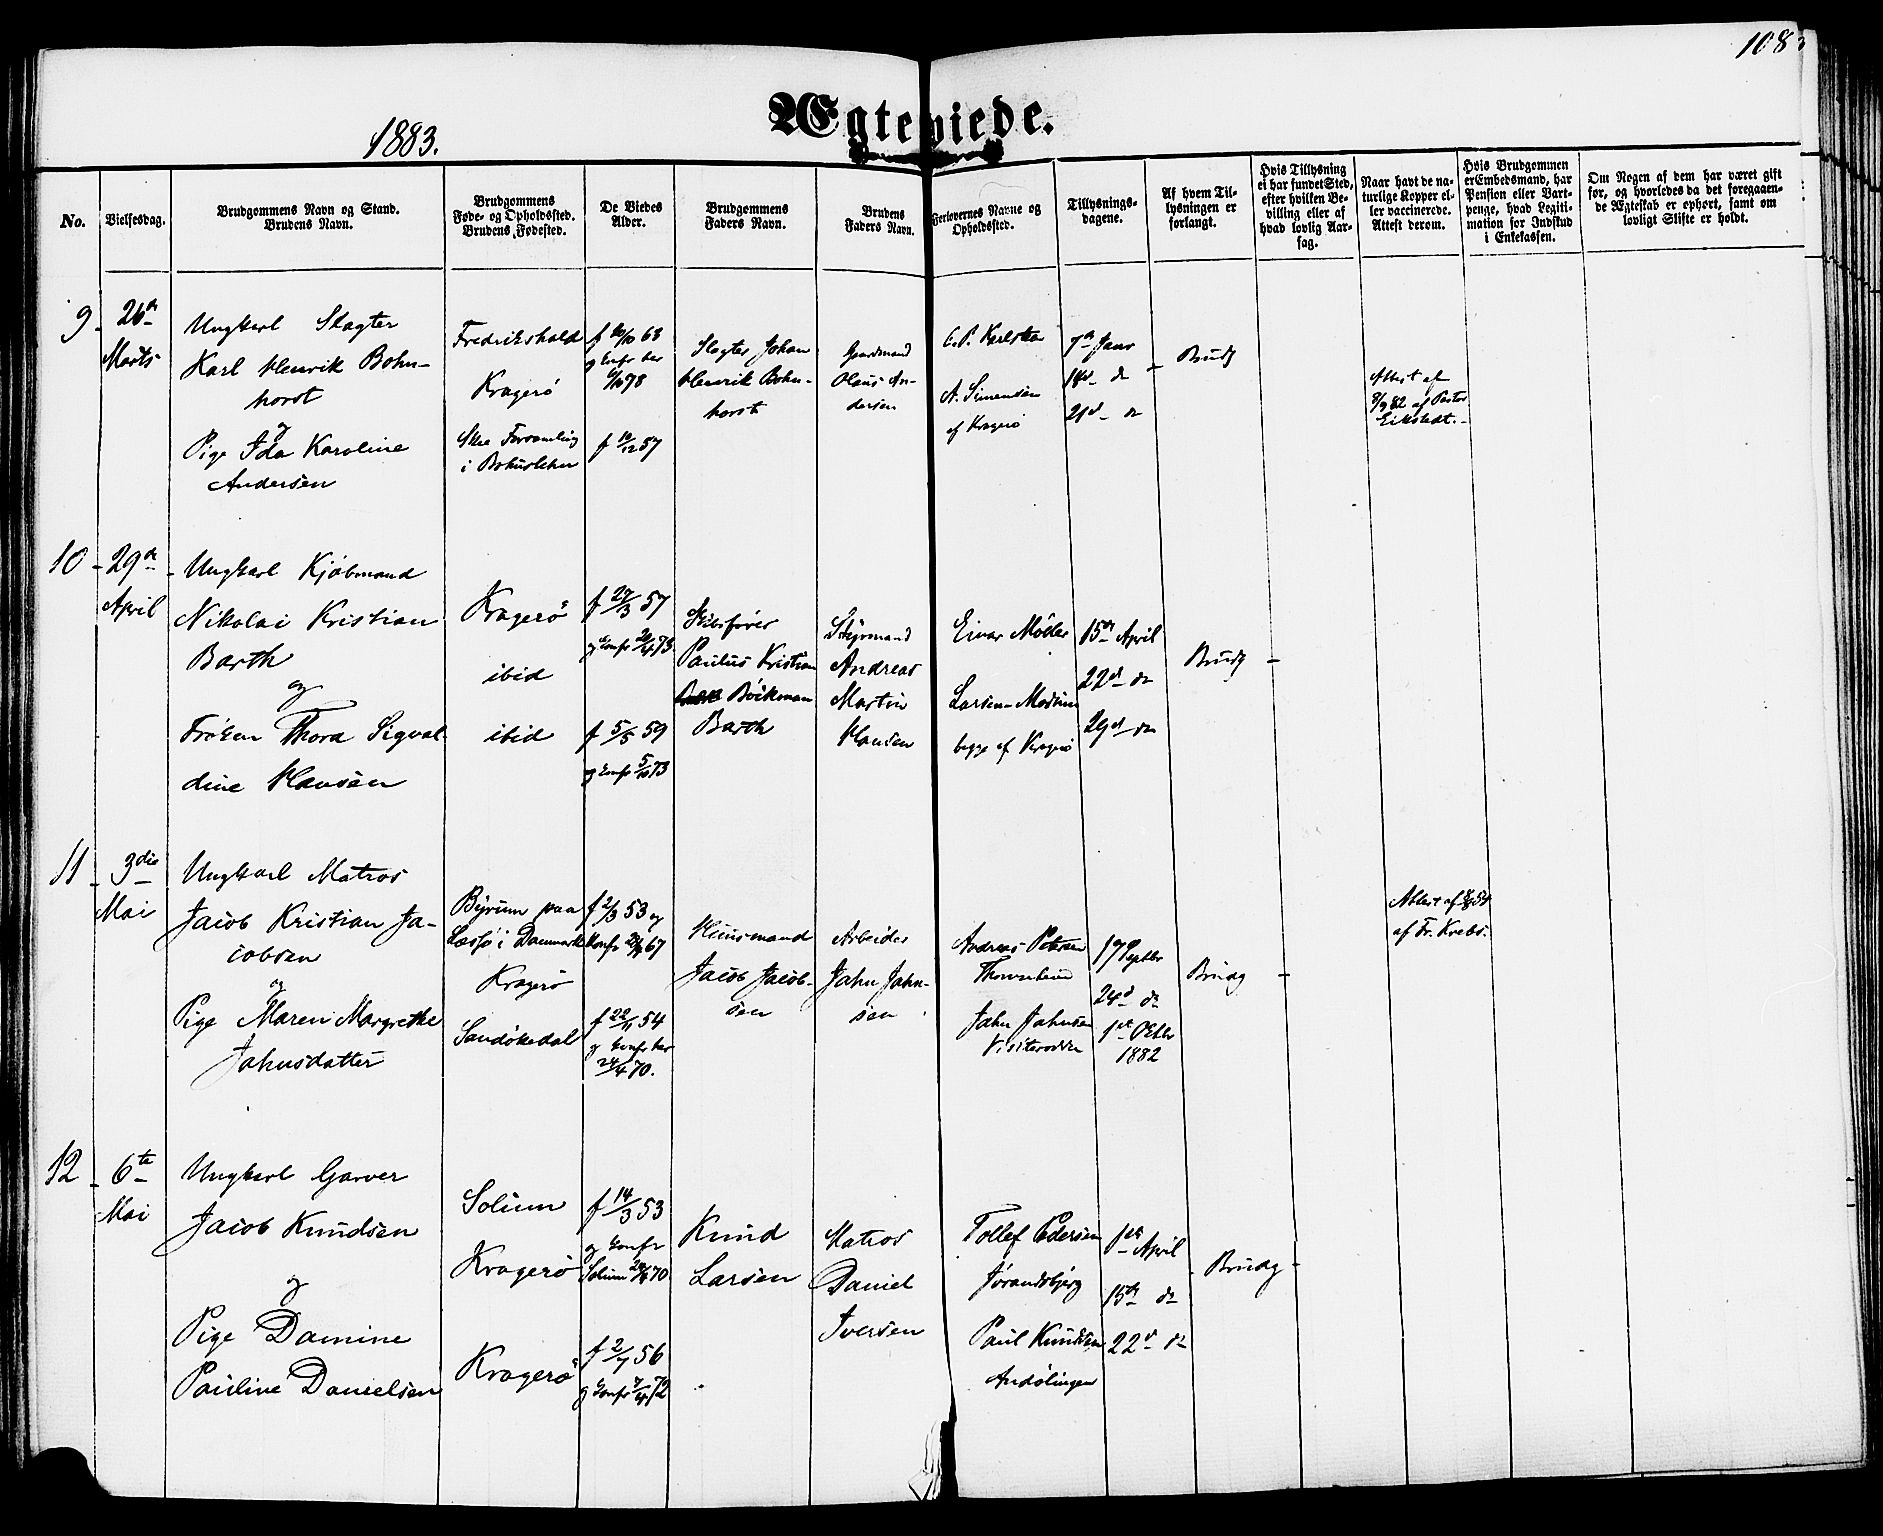 108
Ægteviede.
1883.
No.
Vielsesdag.
Brudgommens Navn og Stand.
Brudens Navn.
Brudgommens
Føde- og Opholdssted.
Brudens Fødested.
De Viedes
Alder.
Brudgommens
Faders Navn.
Brudens
Faders Navn.
Forlovernes Navne og
Opholdssted.
Tillysnings-
dagene.
Af hvem Til-
lysningen er
forlangt.
Hvis Tillysning
ei har fundet Sted,
efter hvilken Be-
villing eller af
hvad lovlig Aar-
sag.
Naar havt de na-
turlige Kopper el-
ler vaccinerede.
Attest derom.
Hvis Brudgommen
er Embedsmand, har
Pension eller Vart-
penge, hvad Legiti-
mation for Indskud
i Enkekassen.
Om Nogen af dem har været gift
før, og hvorledes da det foregaaen-
de Ægteskab er ophørt, samt om
lovligt Skifte er holdt.
9
26de
Marts
Ungkarl Slagter
Karl Henrik Bohn-
horst
og
Pige Ida Karoline
Andersen
Fredrikshald
Kragerö
Skee Forsamling
i Bohuslehn
f 63
og konfr her
78
f 10/12 57
Slagter Johan
Henrik Bohn-
horst
Gaardmand
Olaus An-
dersen
C. P. Karlsten
A. Simensen
af Kragerö
7de Janr
14de do
21de do
Brudg
Attest af
8/9 82 af Pastor
Eikstedt.
10
29de
April
Ungkarl Kjöbmand
Nikolai Kristian
Barth
og
Fröken Thora Sigval
dine Hansen
Kragerö
ibid
ibid
f 27/3 57
og konfr 20/4 73
f 5/5 59
og konfr 5/10 73
Skibsförer
Paulus Kristian
Böckman
Barth
Styrmand
Andreas
Martin
Hansen
Einar Möller
Larsen
begge af Kragerö
15de April
22de do
29de do
Brudg
11
3die
Mai
Ungkarl Matros
Jacob Kristian Ja-
cobsen
og
Pige Maren Margrethe
Jahnsdatter
Byrum paa
Læssö i Danmark
Kragerö
Sandökedal
f 2/3 53 og
konfr 67
f 22/11 54
og konfr her
24/4 70.
Huusmand
Jacob Jacob-
sen
Arbeider
Jahn Jahn-
sen
Andreas Petersen
Jahn Jahnsen
17 Septbr
24de do
1ste Octbr
1882
Brudg
Attest af 54
af Fr. Krebs.
12
6te
Mai
Ungkarl Garver
Jacob Knudsen
og
Pige Damine
Pauline Danielsen
Solum
Kragerö
Kragerö
f 14/3 53
og konfr
Solum 70
f 2/7 56
og konfr 7/4 72
Knud
Larsen
Matros
Daniel
Iversen
Tollef Pedersen
Jörandsbjerg
Paul Knudsen
Andölingen
1ste April
15de do
22de do
Brudg